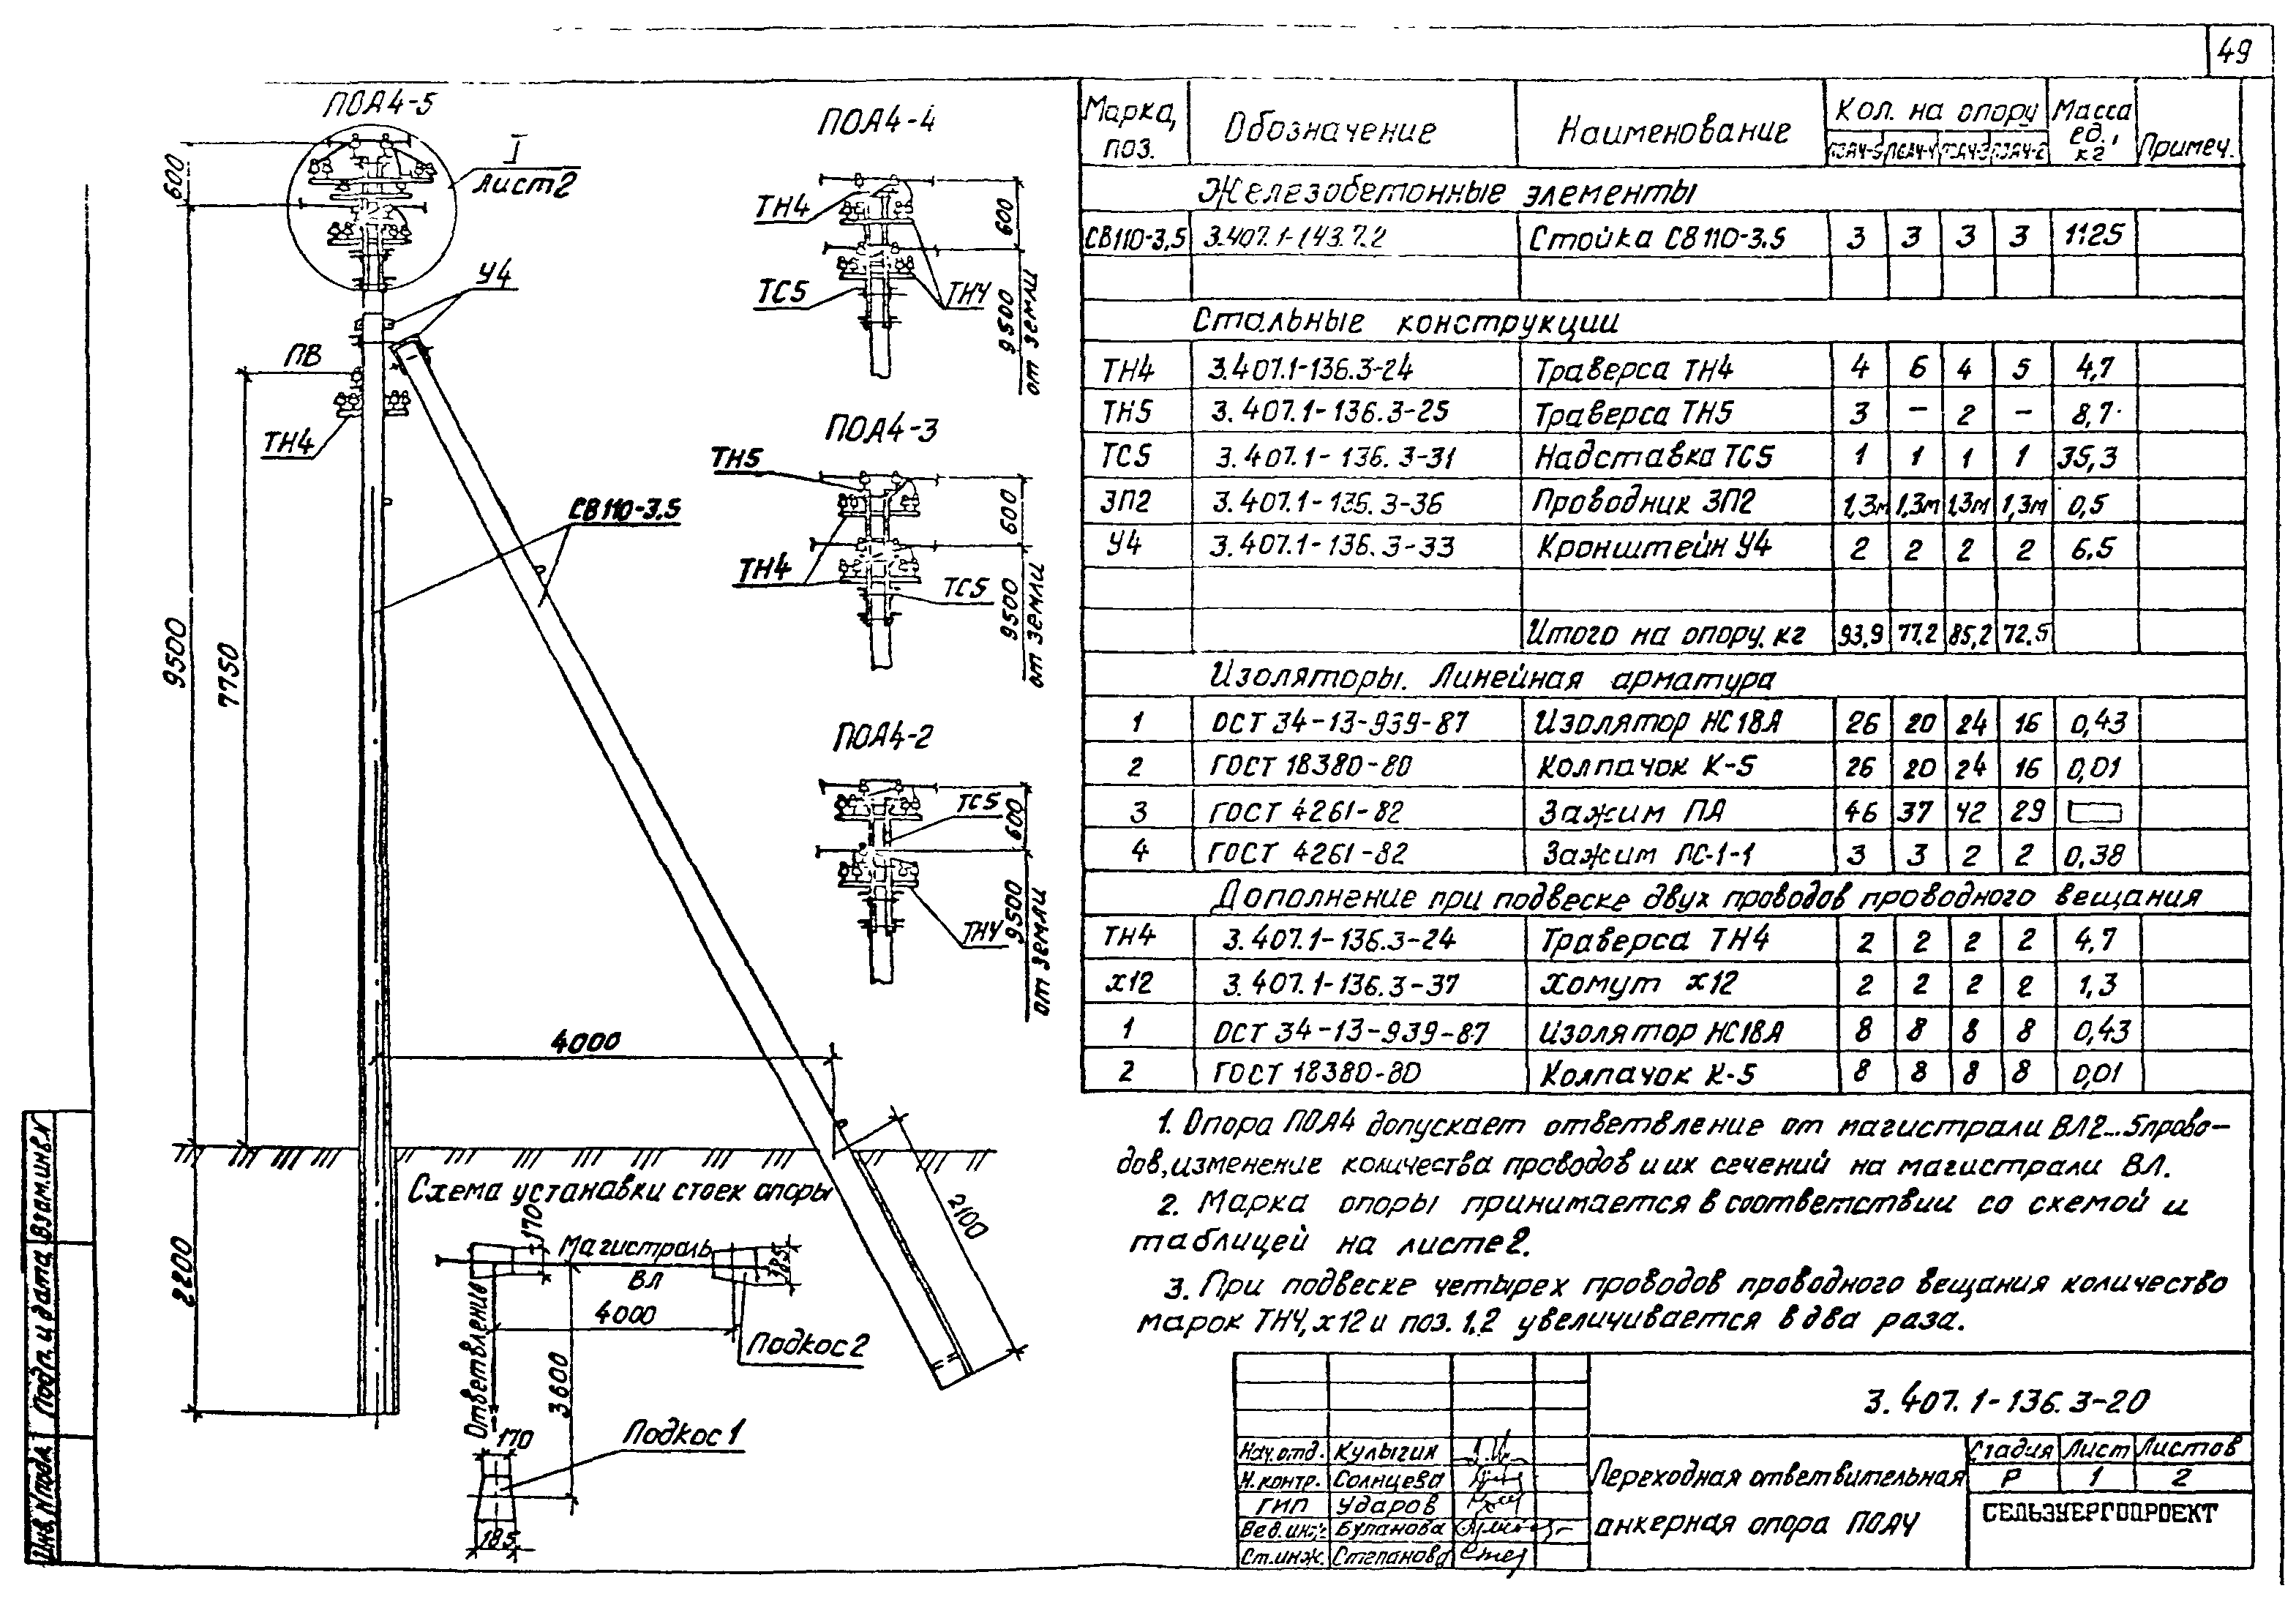 49
ПОА4-5
I
Лист 2
600
У4
ПВ
ТН4
СВ110-3.5
9500
7750
2200
4000
2100
ПОА4-4
ТН4
ТС5
ТН4
600
9500
от земли
ПОА4-3
ТН5
ТН4
ТС5
600
9500
от земли
ПОА4-2
ТС5
ТН4
600
9500
от земли
Схема установки стоек опоры
170
Магистраль
ВЛ
385
4000
Ответвление
3600
Подкос 2
Подкос 1
170
185
Марка, поз. Обозначение Наименование Кол. на опору Масса ед., кг Примеч.
ПОА4-5 ПОА4-4 ПОА4-3 ПОА4-2
Железобетонные элементы
СВ110-3,5 3.407.1-143.7.2 Стойка СВ110-3.5 3 3 3 3 1125
Стальные конструкции
ТН4 3.407.1-136.3-24 Траверса ТН4 4 6 4 5 4,7
ТН5 3.407.1-136.3-25 Траверса ТН5 3 – 2 – 8,7
ТС5 3.407.1-136.3-31 Надставка ТС5 1 1 1 1 35,3
ЗП2 3.407.1-136.3-36 Проводник ЗП2 1,3м 1,3м 1,3м 1,3м 0,5
У4 3.407.1-136.3-33 Кронштейн У4 2 2 2 2 6.5
Итого на опору, кг 93,9 77.2 85,2 72.5
Изоляторы. Линейная арматура
1 ОСТ 34-13-939-87 Изолятор НС18А 26 20 24 16 0,43
2 ГОСТ 18380-80 Колпачок К-5 26 20 24 16 0,01
3 ГОСТ 4261-82 Зажим ПА 46 37 42 29
4 ГОСТ 4261-82 Зажим ПС-1-1 3 3 2 2 0,38
Дополнение при подвеске двух проводов проводного вещания
ТН4 3.407.1-136.3-24 Траверса ТН4 2 2 2 2 4,7
Х12 3.407.1-136.3-37 Хомут Х12 2 2 2 2 1,3
1 ОСТ 34-13-939-87 Изолятор НС18А 8 8 8 8 0,43
2 ГОСТ 18380-80 Колпачок К-5 8 8 8 8 0,01
1. Опора ПОА4 допускает ответвление от магистрали ВЛ 2...5 прово-
дов, изменение количества проводов и их сечений на магистрали ВЛ.
2. Марка опоры принимается в соответствии со схемой и
таблицей на листе 2.
3. При подвеске четырех проводов проводного вещания количество
марок ТН4, х12 и поз. 1,2 увеличивается в два раза.
3.407.1-136.3-20
Нач.отд. Кулыгин
Н.контр. Солнцева
ГИП Ударов
Вед.инж. Буланова
Ст.инж. Степанова
Переходная ответвительная
анкерная опора ПОА4
Стадия Лист Листов
Р 1 2
СЕЛЬЭНЕРГОПРОЕКТ
Инв.№подл. Подп. и дата Взам.инв.№